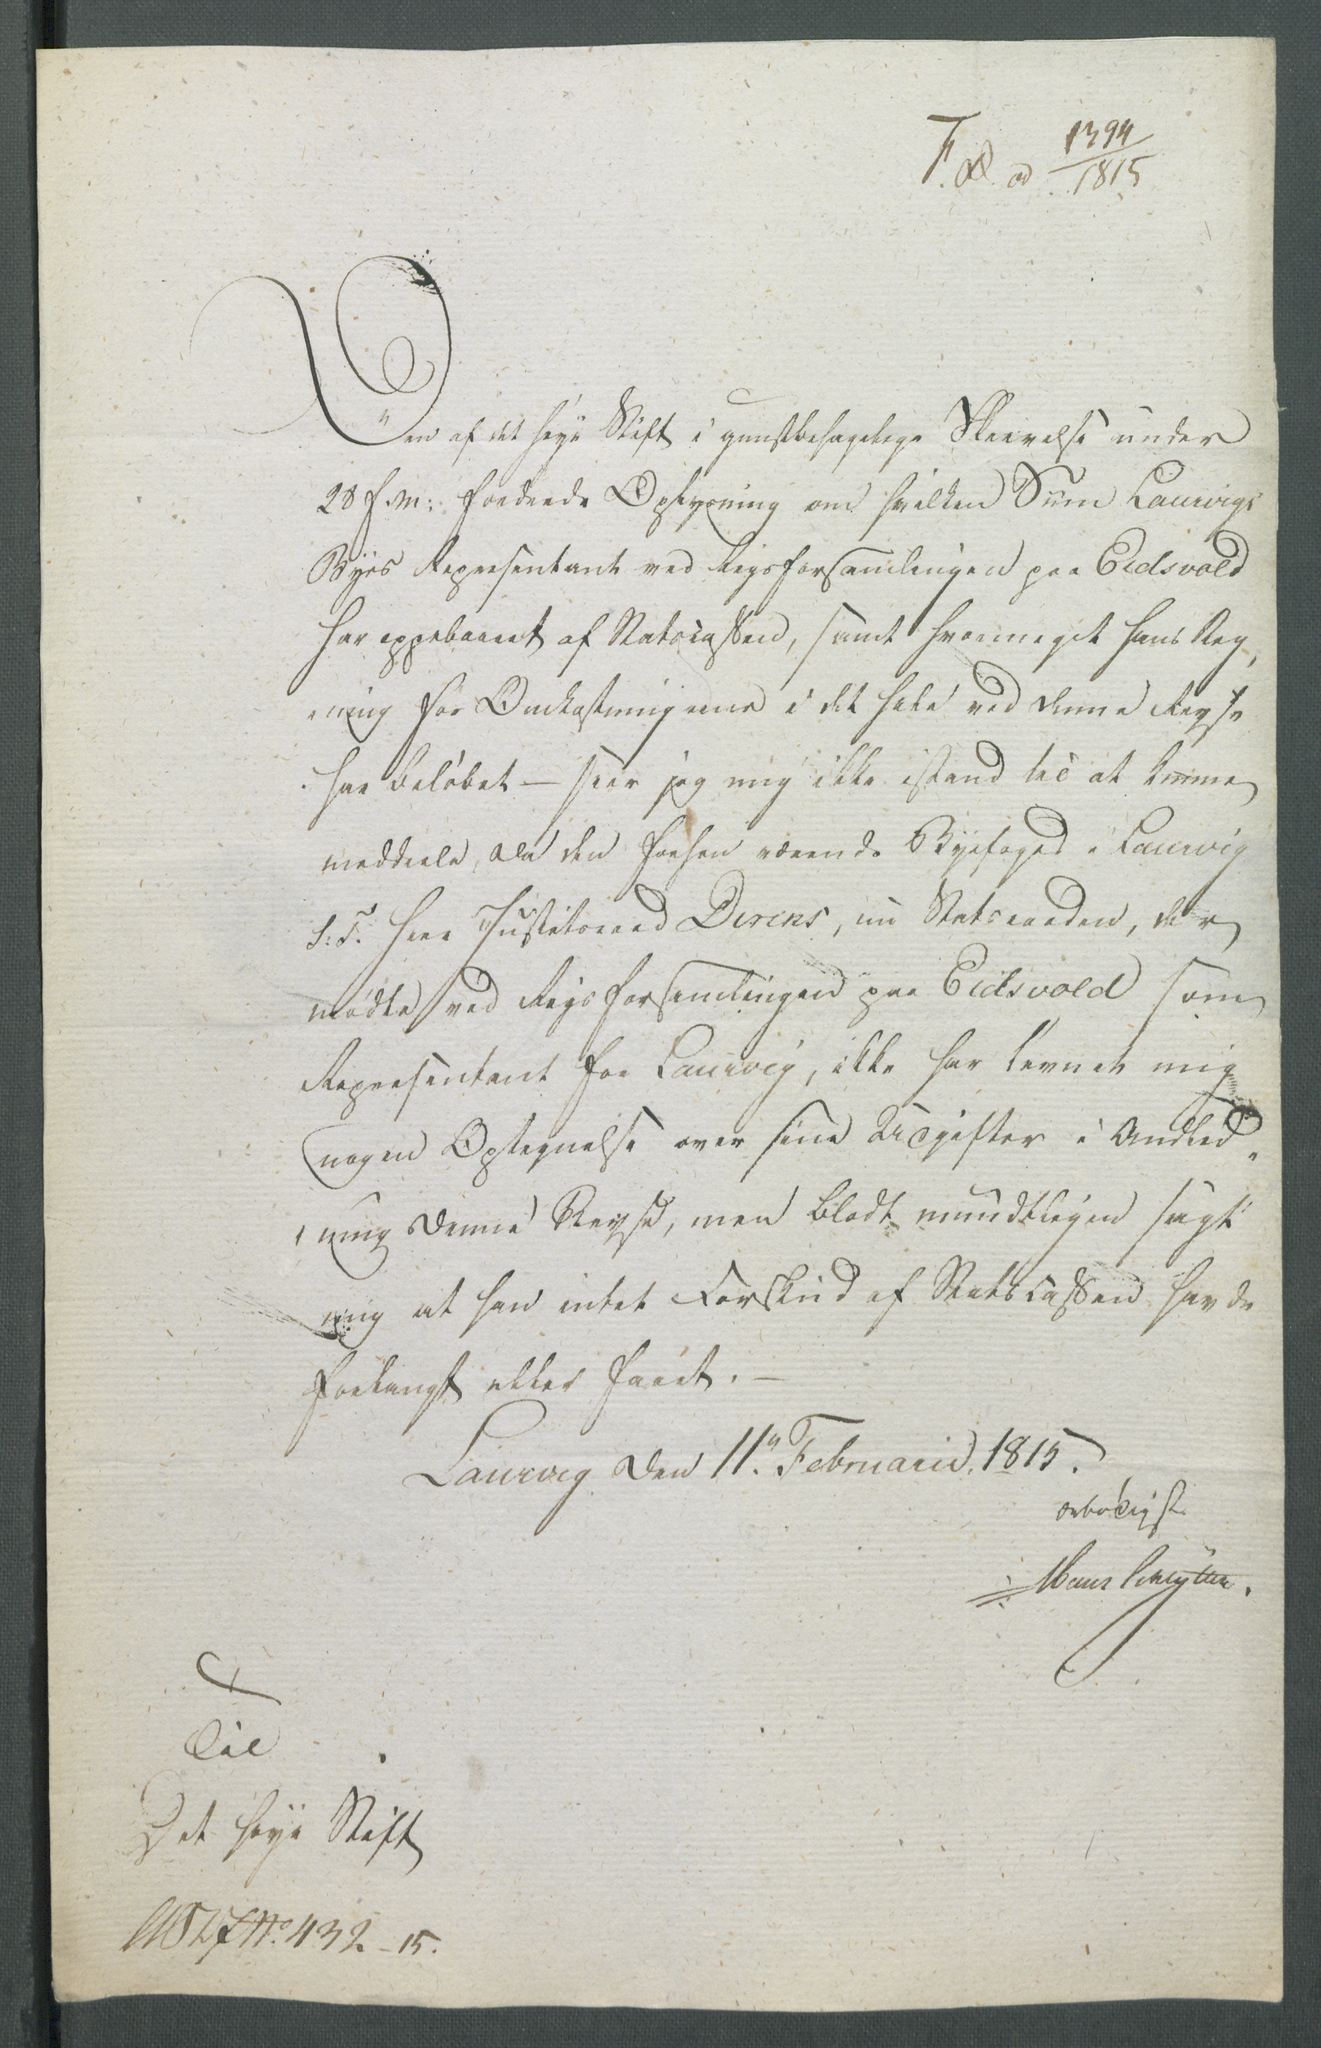 1394
1815
Den af det høye Stift i gunstbehagelige Skrivelse under
28 f. M: fordrede Oplysning om hvilken Sum Laurvigs
Byes Repræsentant ved Rigsforsamlingen paa Eidsvold
har oppebaaret af Statscassen, samt hvormeget hans Reg-
ning for Omkostningerne i det hele ved denne Reyse
har beløbet – seer jeg mig ikke istand til at kunne
meddeele, da den forhen værende Byefoged i Laurvig
S:T. Herr Justitsraad Dircks, nu Statsraaden, der
mødte ved Rigsforsamlingen paa Eidsvold som
Repræsentant for Laurvig, ikke har levnet mig
nogen Optegnelse over sine Udgifter i Andled-
ning denne Reyse, men blodt mundtligen sagt
mig at han intet Forskud af Statscassen havde
forlangt eller faaet. –
Laurvig den 11te Februarii 1815.
ærbødigst
Til
Det høye Stift
No. 432 - 15.